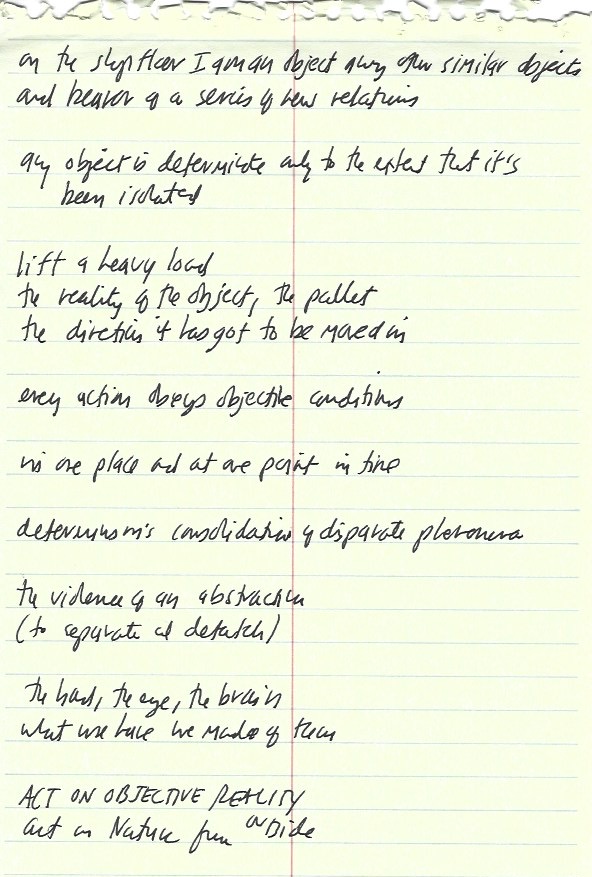 on the shop floor I am an object among other similar objects
and bearer of a series of new relations
any object is determinate only to the extent that it's
been isolated
lift a heavy load
the reality of the object, the pallet
the direction it has got to be moved in
every action obeys objective conditions
in one place and at one point in time
determinism's consolidation of disparate phenomena
the violence of an abstraction
(to separate and detatch)
the hand, the eye, the brain
what use have we made of them
ACT ON OBJECTIVE REALITY
act on Nature from outside